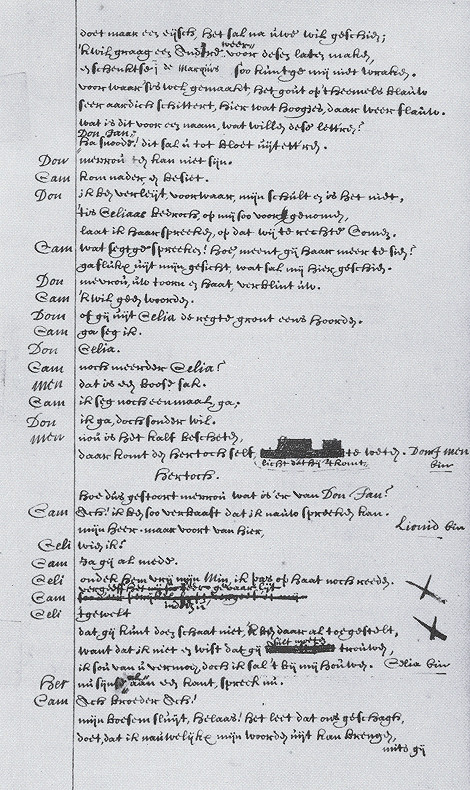 doet maar een eijsch, het sal na uwe wil geschien;
'k wil graag een And're weer voor desen laten maken,
en schenkt se de Marquis soo kunt ge mij niet wraken.
voorwaar 't is wel gemaakt, het gout op 't heemels blauw
seer aardich schittert, hier wat hooger, daar weer flauw.
wat is dit voor een naam, wat willen dese lett'ren?
Don Jan;
Ha snoode! dit sal u tot bloet uijtett'ren.
Don mevrou en kan niet sijn.
Sam kom nader, en besiet.
Don ik ben verleijt, voorwaar, mijn schult en is het niet,
't is Seliaas bedroch, op mij soo voorgenomen,
laat ik haar spreeken, op dat wij te rechte komen.
Sam wat segt ge spreeken? hoe, meent gij haar meer te sien?
gaflukx uijt mijn gesicht, wat sal mij hier geschien.
Don mevrou, uw toorn en haat, verklint uw.
Sam 'k wil geen woorden.
Don of gij uijt Selia de regte gront eens hoorden.
Sam ga seg ik.
Don Selia.
Sam noch meerder Selia?
men dat is een boose sak.
Sam ik seg noch eenmaal, ga;
Don ik ga, doch sonder wil.
men nou is het kalf bescheten,
daar komt den hertoch self, te weten. Don & men bin
licht dat hij 't komt
Hertoch.
Hoe dus gestoort mevrou wat is 'er van Don Jan?
Sam Ach! ik ben soo verbaast dat ik nauw spreeken kan.
mijn heer. maar voort van hier, Lionid bin
Seli wie ik?
Sam Ja gij al mede.
Seli ondek hem vrij mijn Min, ik pas op haat noch reeden.
Sam
Seli 't gewelt
dat gij kunt doen schaat niet, 'k ben daar al toegestelt,
want dat ik niet en wist dat gij trouwen,
ik sou van u vermoen, doch ik sal 't bij mij houwen. Selia bin
Her nu sijn al aan een kant, spreek nu.
Sam Ach broeder Ach!
mijn boesem sluijt, helaas! het leet dat ons geschagh,
doet, dat ik nauwelijkx mijn woorden uijt kan brengen,
mits gij